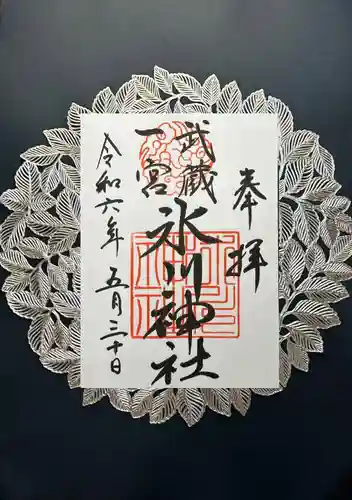 奉拝
武蔵
一宮
氷川神社
令和六年 五月三十日